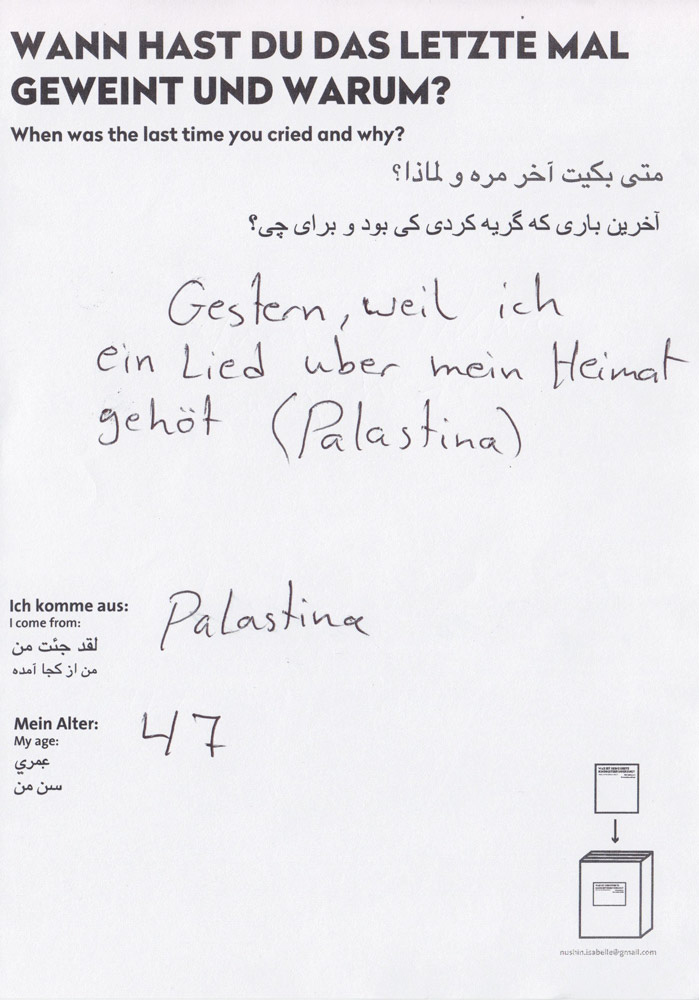 WANN HAST DU DAS LETZTE MAL
GEWEINT UND WARUM?
When was the last time you cried and why?
متى بكيت آخر مره و لماذا؟
آخرین باری که گریه کردی کی بود و برای چی؟
Gestern, weil ich
ein Lied uber mein Heimat
gehöt (Palastina)
Ich komme aus:
I come from:
لقد جئت من
من از کجا آمده
Palastina
Mein Alter:
My age:
عمري
سن من
47
nushin.isabelle@gmail.com